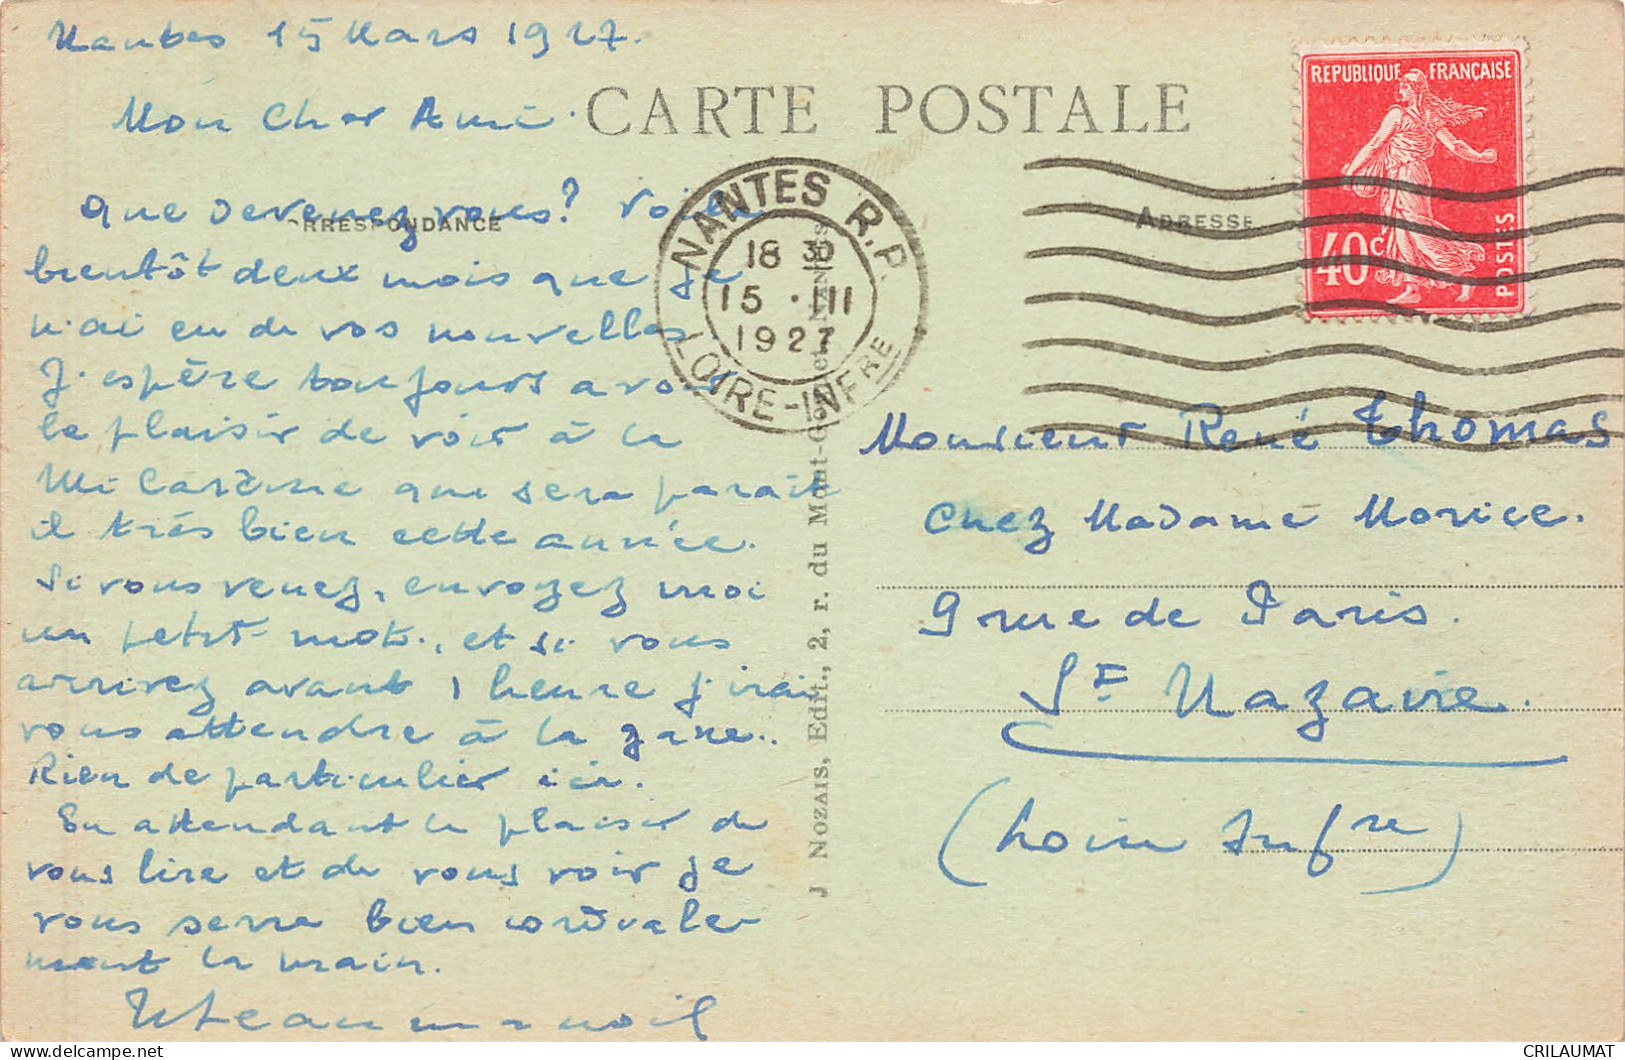 Nantes 15 Mars 1927.
Mon Cher Ami.
CARTE POSTALE
CORRESPONDANCE
ADRESSE
REPUBLIQUE FRANÇAISE
40c
POSTES
NANTES R.P.
18 30
15 · III
1927
LOIRE-INFRE
que devenez vous? voilà
bientôt deux mois que je
n'ai eu de vos nouvelles.
J'espère toujours avoir
le plaisir de voir à la
Mi Carême qui sera parait
il très bien cette année.
Si vous venez, envoyez moi
un petit mot, et si vous
arrivez avant 1 heure j'irai
vous attendre à la gare..
Rien de particulier ici.
En attendant le plaisir de
vous lire et de vous voir je
vous serre bien cordiale-
ment la main.
J NOZAIS, Edit., 2, r. du Mont-Goguet NANTES
Monsieur René Thomas
chez Madame Morice.
9 rue de Paris.
St Nazaire.
(Loire Infre)
CRILAUMAT